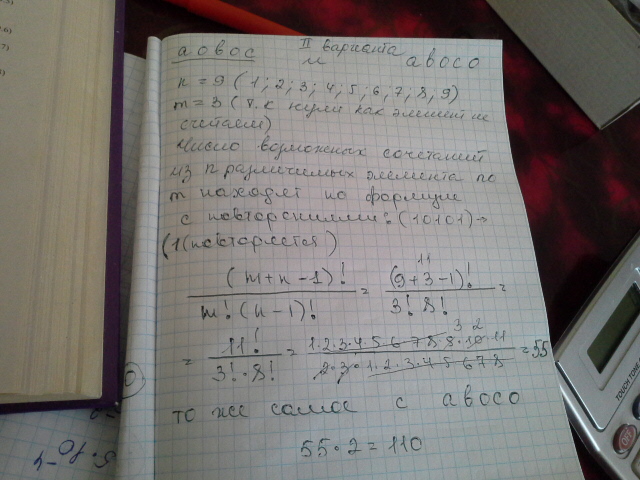 аовос II варианта и авосо
n = 9 (1; 2; 3; 4; 5; 6; 7; 8, 9)
m = 3 (т.к нули как элемент не
считаем)
Число возможных сочетаний
из n различимых элемента по
m находят по формуле
с повторениями: (10101) →
(1(повторяется)
(m+n-1)! / m!(n-1)! = (9+3-1)! / 3! 8! =
11
= 11! / 3!·8! = 1·2·3·4·5·6·7·8·9·10·11 / 2·3·1·2·3·4·5·6·7·8 = 55
3 2
то же самое с авосо
55·2=110
TOUCH TONE